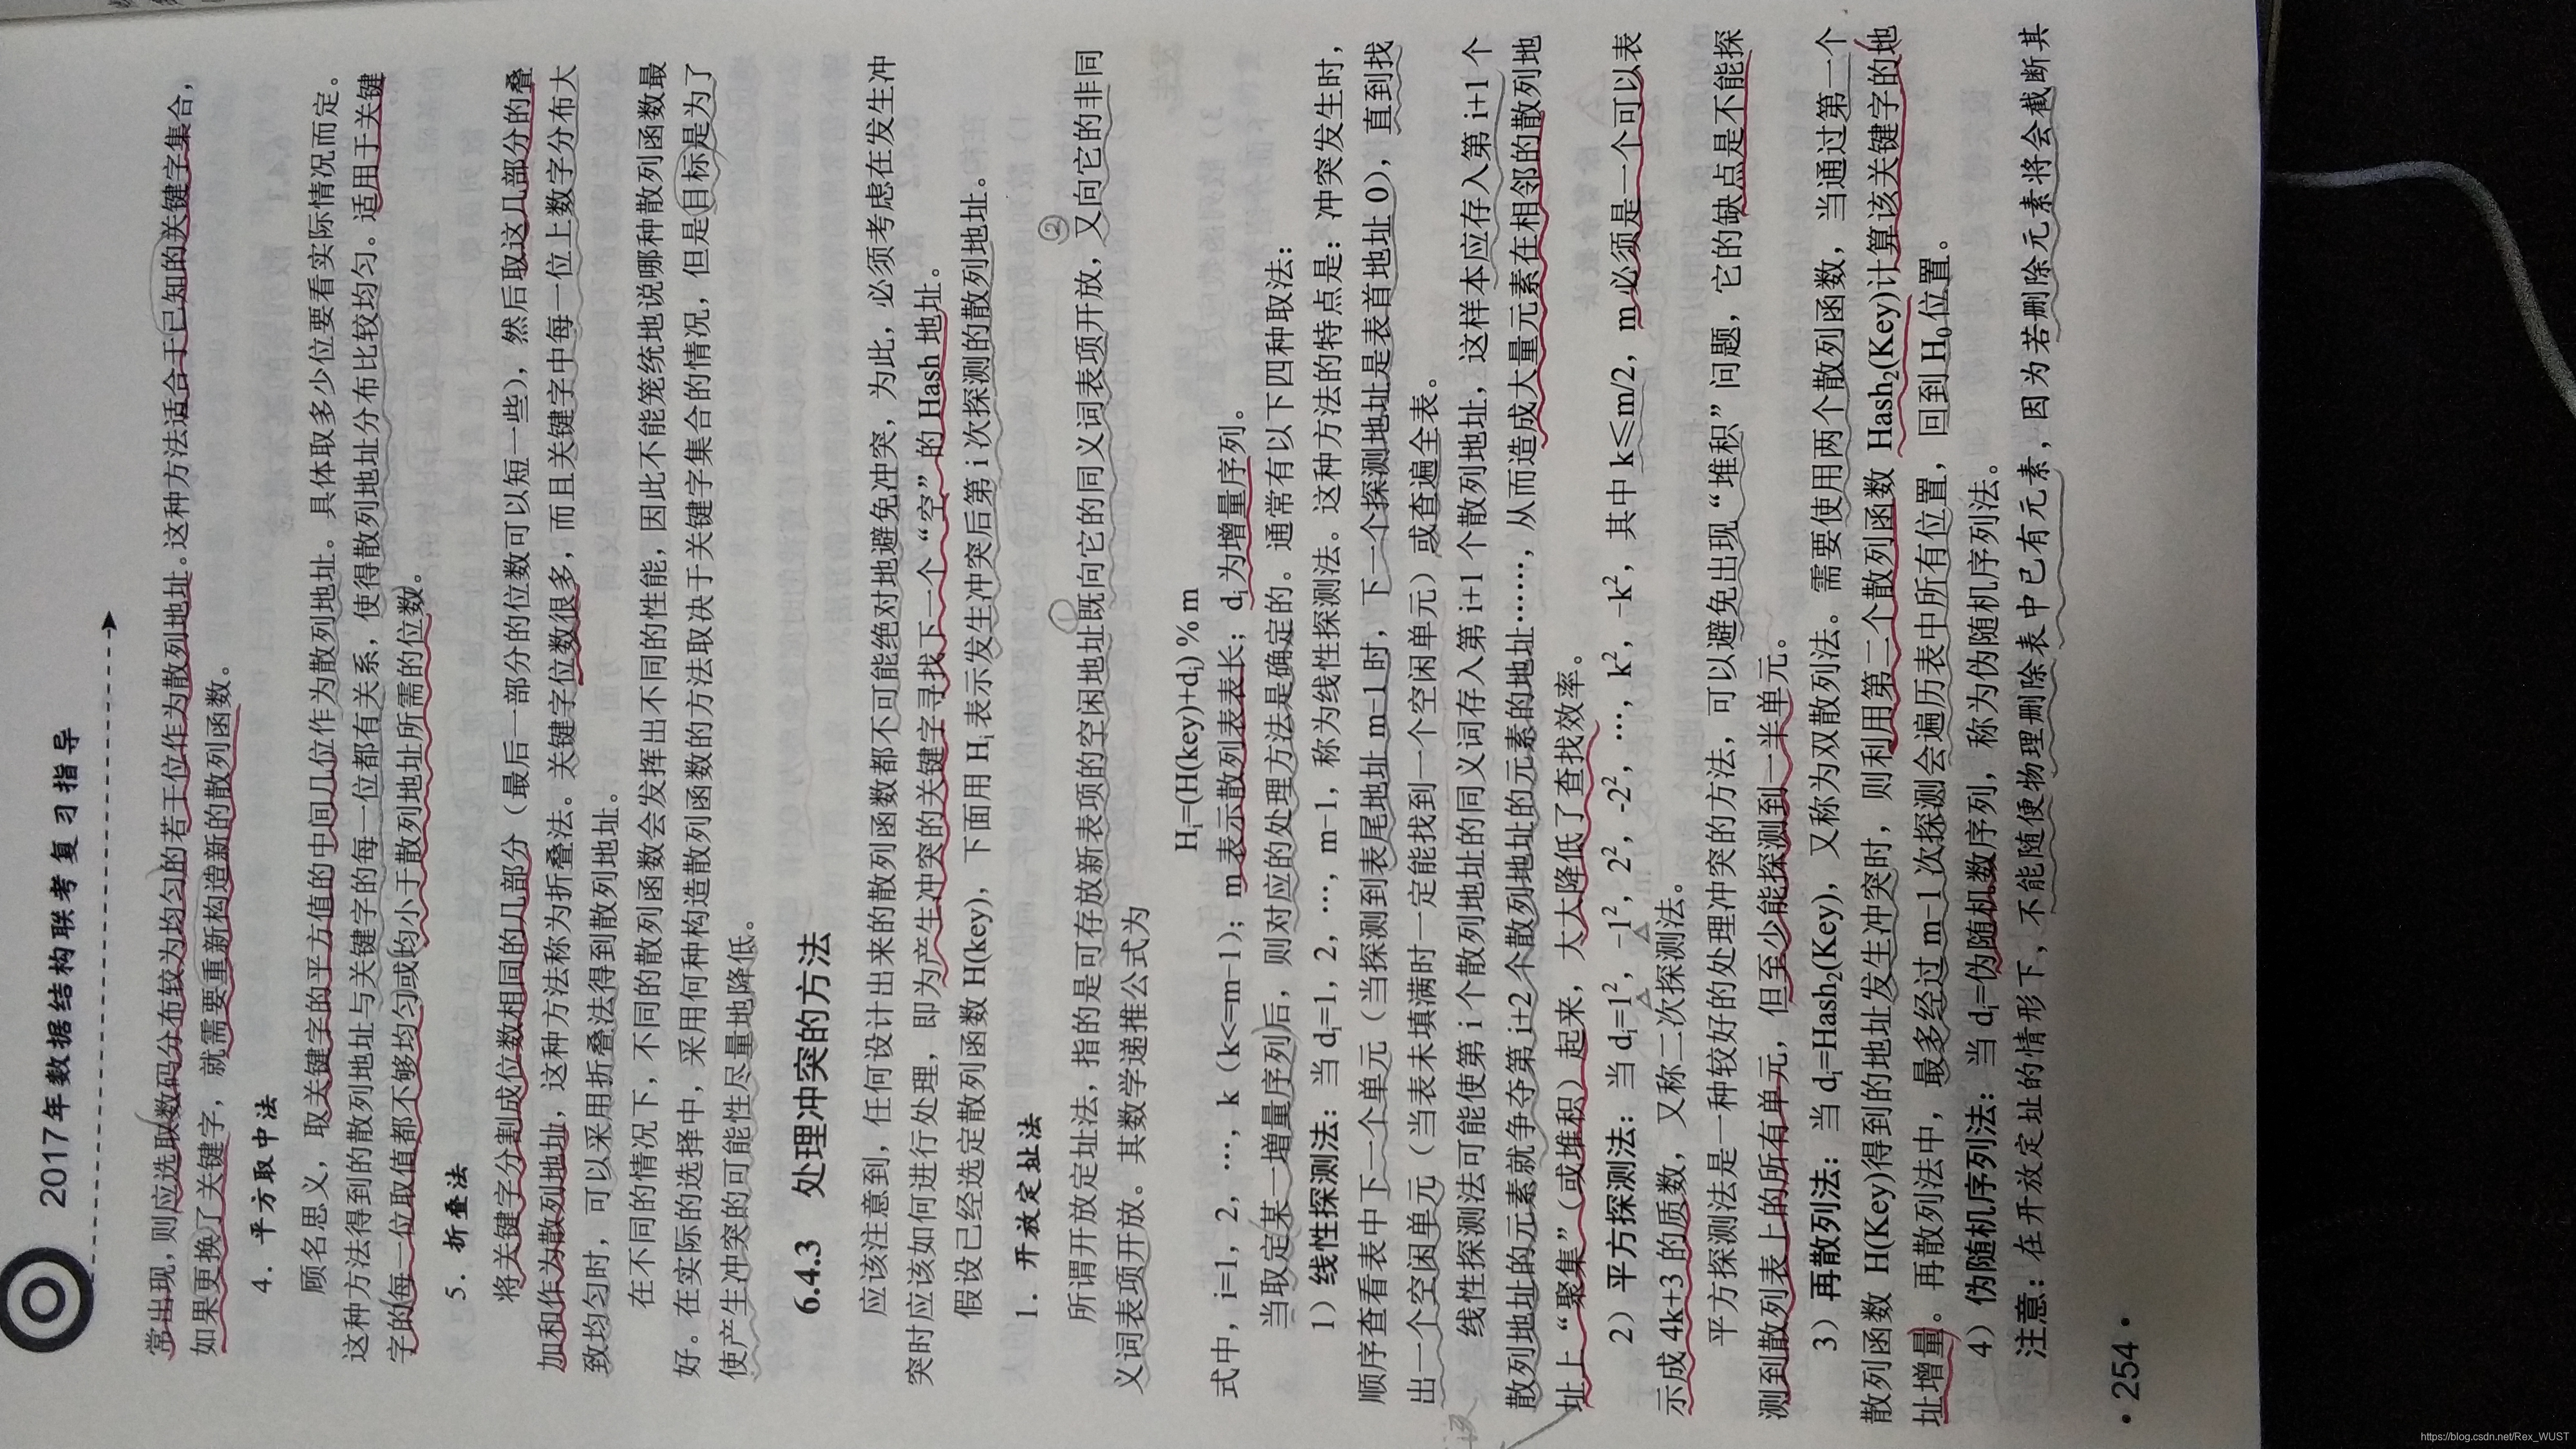 2017年数据结构联考复习指导
常出现，则应选取数码分布较为均匀的若干位作为散列地址。这种方法适合于已知的关键字集合，
如果更换了关键字，就需要重新构造新的散列函数。
4．平方取中法
顾名思义，取关键字的平方值的中间几位作为散列地址。具体取多少位要看实际情况而定。
这种方法得到的散列地址与关键字的每一位都有关系，使得散列地址分布比较均匀。适用于关键
字的每一位取值都不够均匀或均小于散列地址所需的位数。
5．折叠法
将关键字分割成位数相同的几部分（最后一部分的位数可以短一些），然后取这几部分的叠
加和作为散列地址，这种方法称为折叠法。关键字位数很多，而且关键字中每一位上数字分布大
致均匀时，可以采用折叠法得到散列地址。
在不同的情况下，不同的散列函数会发挥出不同的性能，因此不能笼统地说哪种散列函数最
好。在实际的选择中，采用何种构造散列函数的方法取决于关键字集合的情况，但是目标是为了
使产生冲突的可能性尽量地降低。
6.4.3 处理冲突的方法
应该注意到，任何设计出来的散列函数都不可能绝对地避免冲突，为此，必须考虑在发生冲
突时应该如何进行处理，即为产生冲突的关键字寻找下一个“空”的 Hash 地址。
假设已经选定散列函数 H(key)，下面用 Hᵢ表示发生冲突后第 i 次探测的散列地址。
1．开放定址法
②
所谓开放定址法，指的是可存放新表项的空闲地址既向它的同义词表项开放，又向它的非同
义词表项开放。其数学递推公式为
Hᵢ=(H(key)+dᵢ) % m
式中，i=1，2，…，k（k<=m−1）；m 表示散列表表长；dᵢ为增量序列。
当取定某一增量序列后，则对应的处理方法是确定的。通常有以下四种取法：
1）线性探测法：当 dᵢ=1，2，…，m−1，称为线性探测法。这种方法的特点是：冲突发生时，
顺序查看表中下一个单元（当探测到表尾地址 m−1 时，下一个探测地址是表首地址 0），直到找
出一个空闲单元（当表未填满时一定能找到一个空闲单元）或查遍全表。
线性探测法可能使第 i 个散列地址的同义词存入第 i+1 个散列地址，这样本应存入第 i+1 个
散列地址的元素就争夺第 i+2 个散列地址的元素的地址……，从而造成大量元素在相邻的散列地
址上“聚集”（或堆积）起来，大大降低了查找效率。
2）平方探测法：当 dᵢ=1²，−1²，2²，-2²，…，k²，-k²，其中 k≤m/2，m 必须是一个可以表
示成 4k+3 的质数，又称二次探测法。
平方探测法是一种较好的处理冲突的方法，可以避免出现“堆积”问题，它的缺点是不能探
测到散列表上的所有单元，但至少能探测到一半单元。
3）再散列法：当 dᵢ=Hash₂(Key)，又称为双散列法。需要使用两个散列函数，当通过第一个
散列函数 H(Key)得到的地址发生冲突时，则利用第二个散列函数 Hash₂(Key)计算该关键字的地
址增量。再散列法中，最多经过 m−1 次探测会遍历表中所有位置，回到 H₀位置。
4）伪随机序列法：当 dᵢ=伪随机数序列，称为伪随机序列法。
注意：在开放定址的情形下，不能随便物理删除表中已有元素，因为若删除元素将会截断其
·254·
https://blog.csdn.net/Rex_WUST